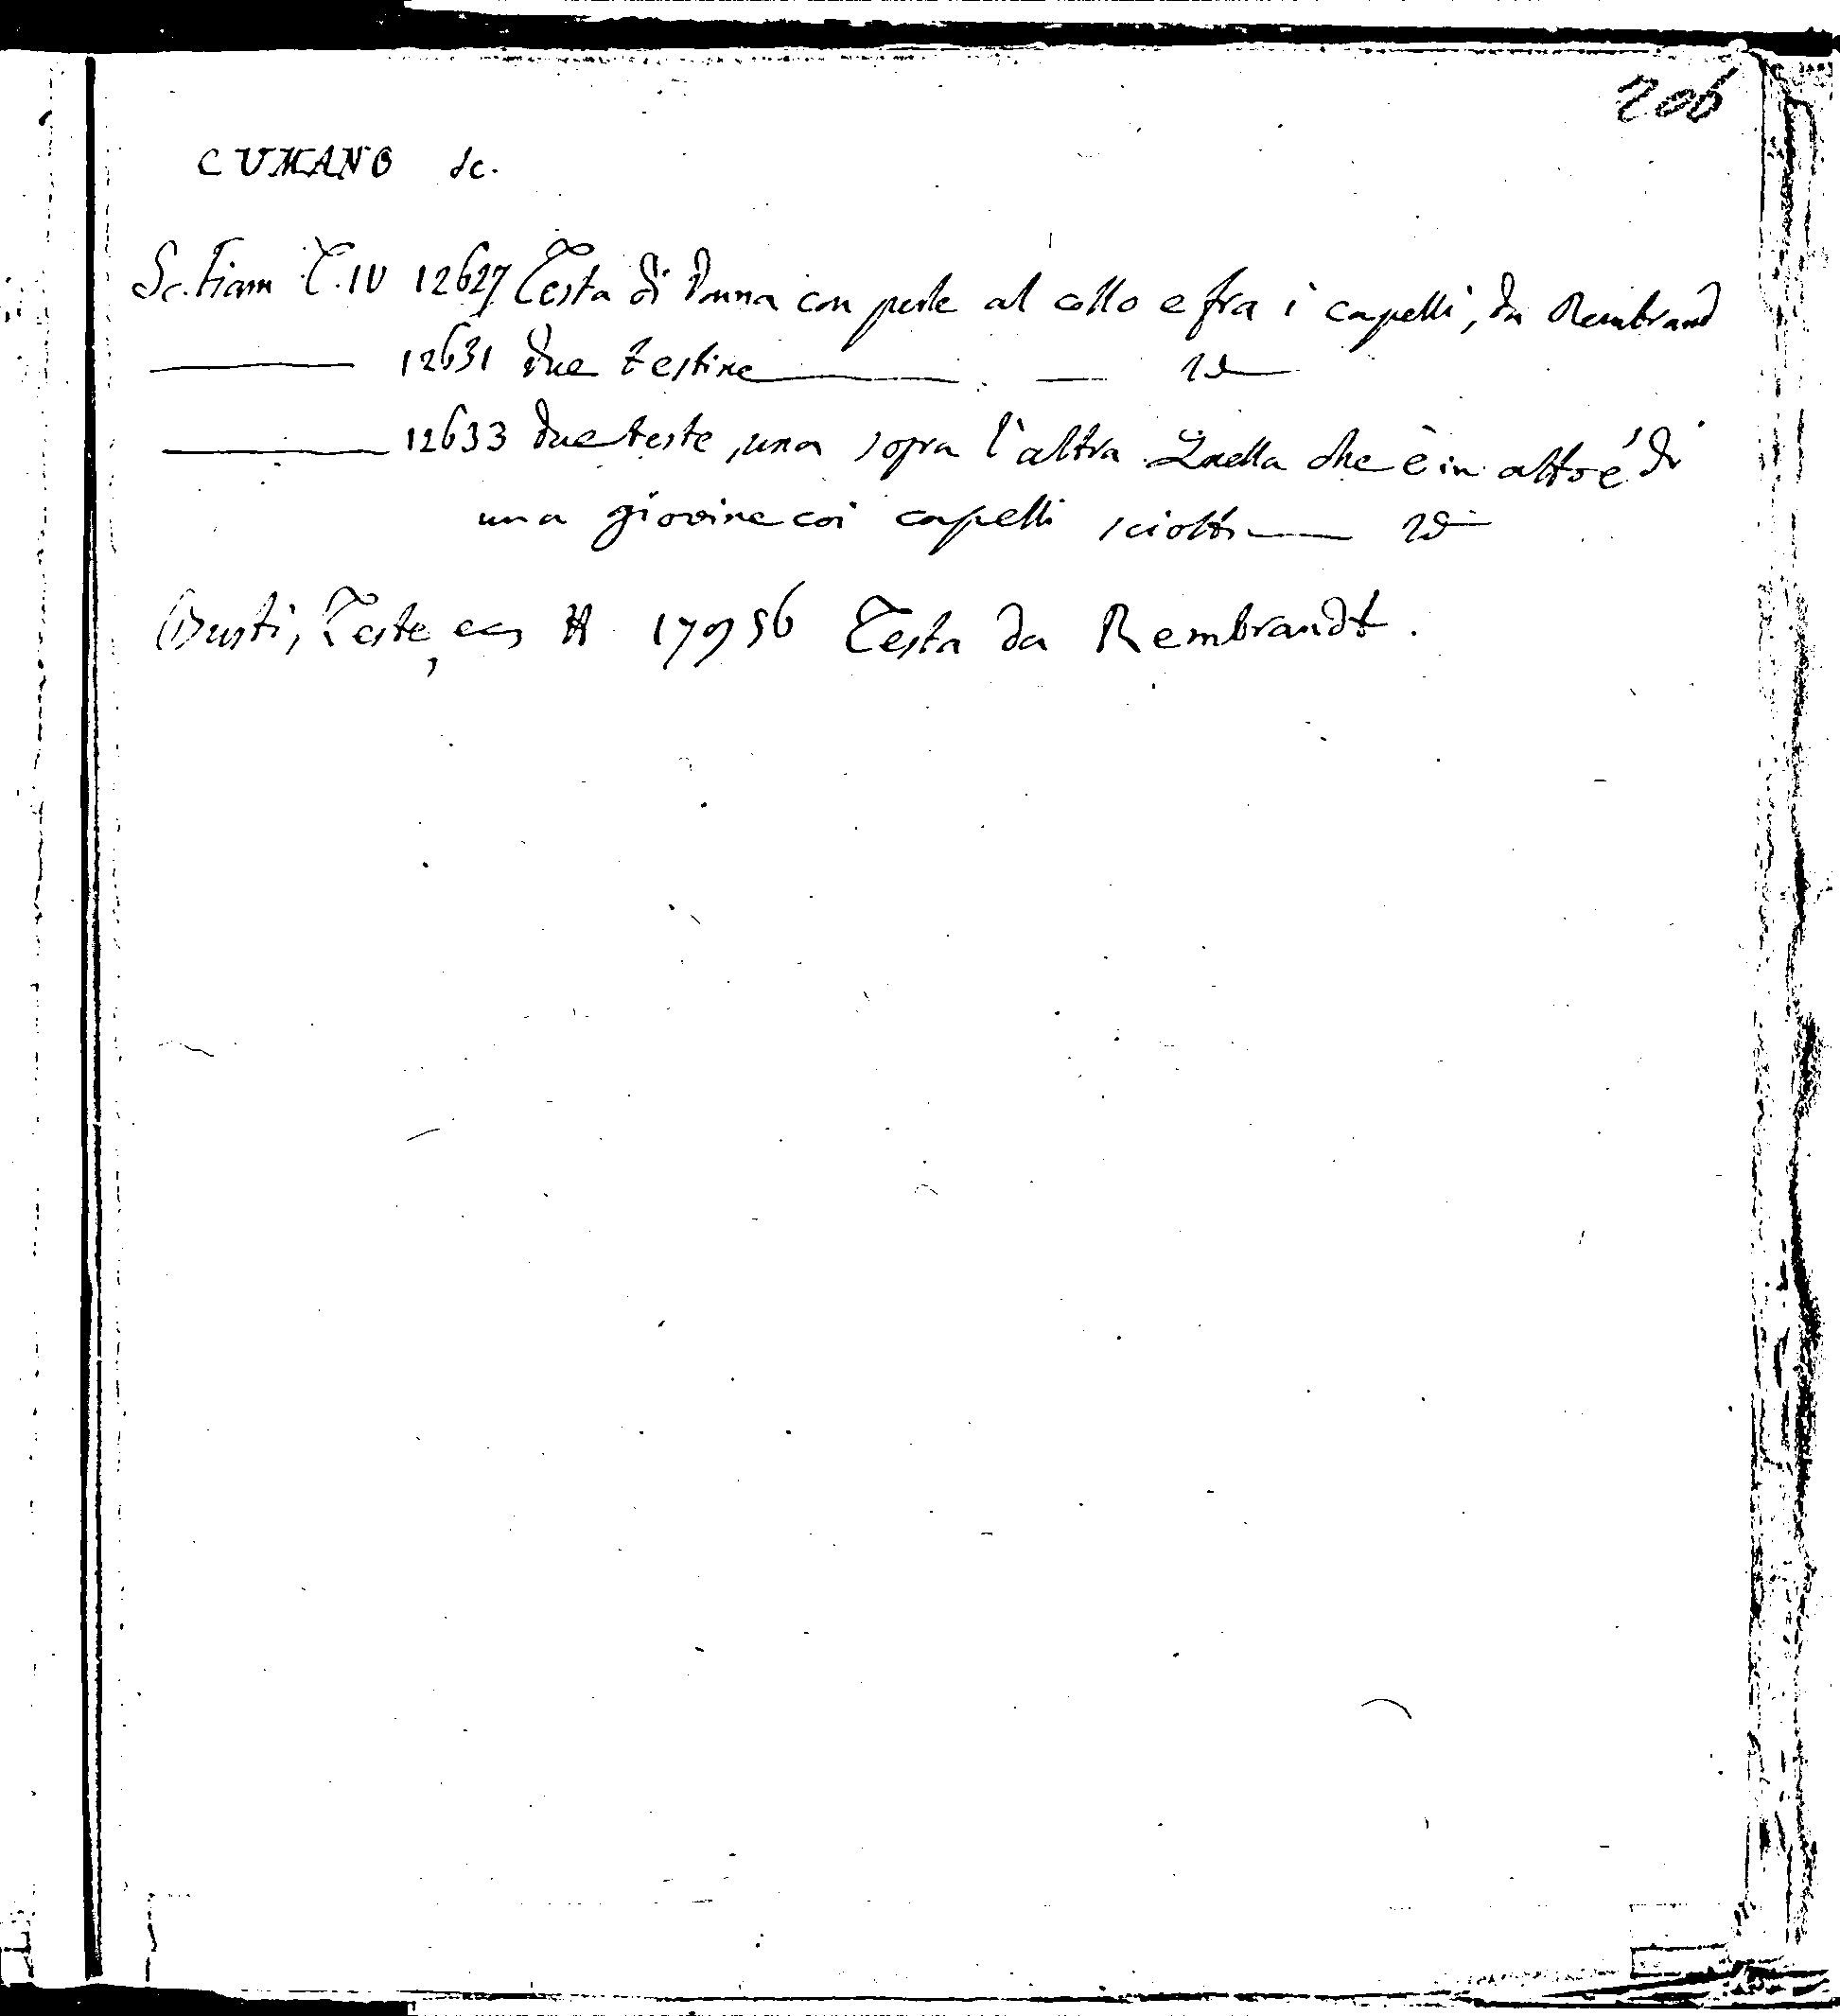 206
CUMANO sc.
Sc. Fiam T. IV 12627 Testa di Donna con perle al collo e fra i capelli, da Rembrand
12631 due testine Id
12633 due teste, una sopra l'altra. Quella che è in alto é di
una giovine coi capelli sciolti Id
Busti, Teste, ec, H 17956 Testa da Rembrandt.